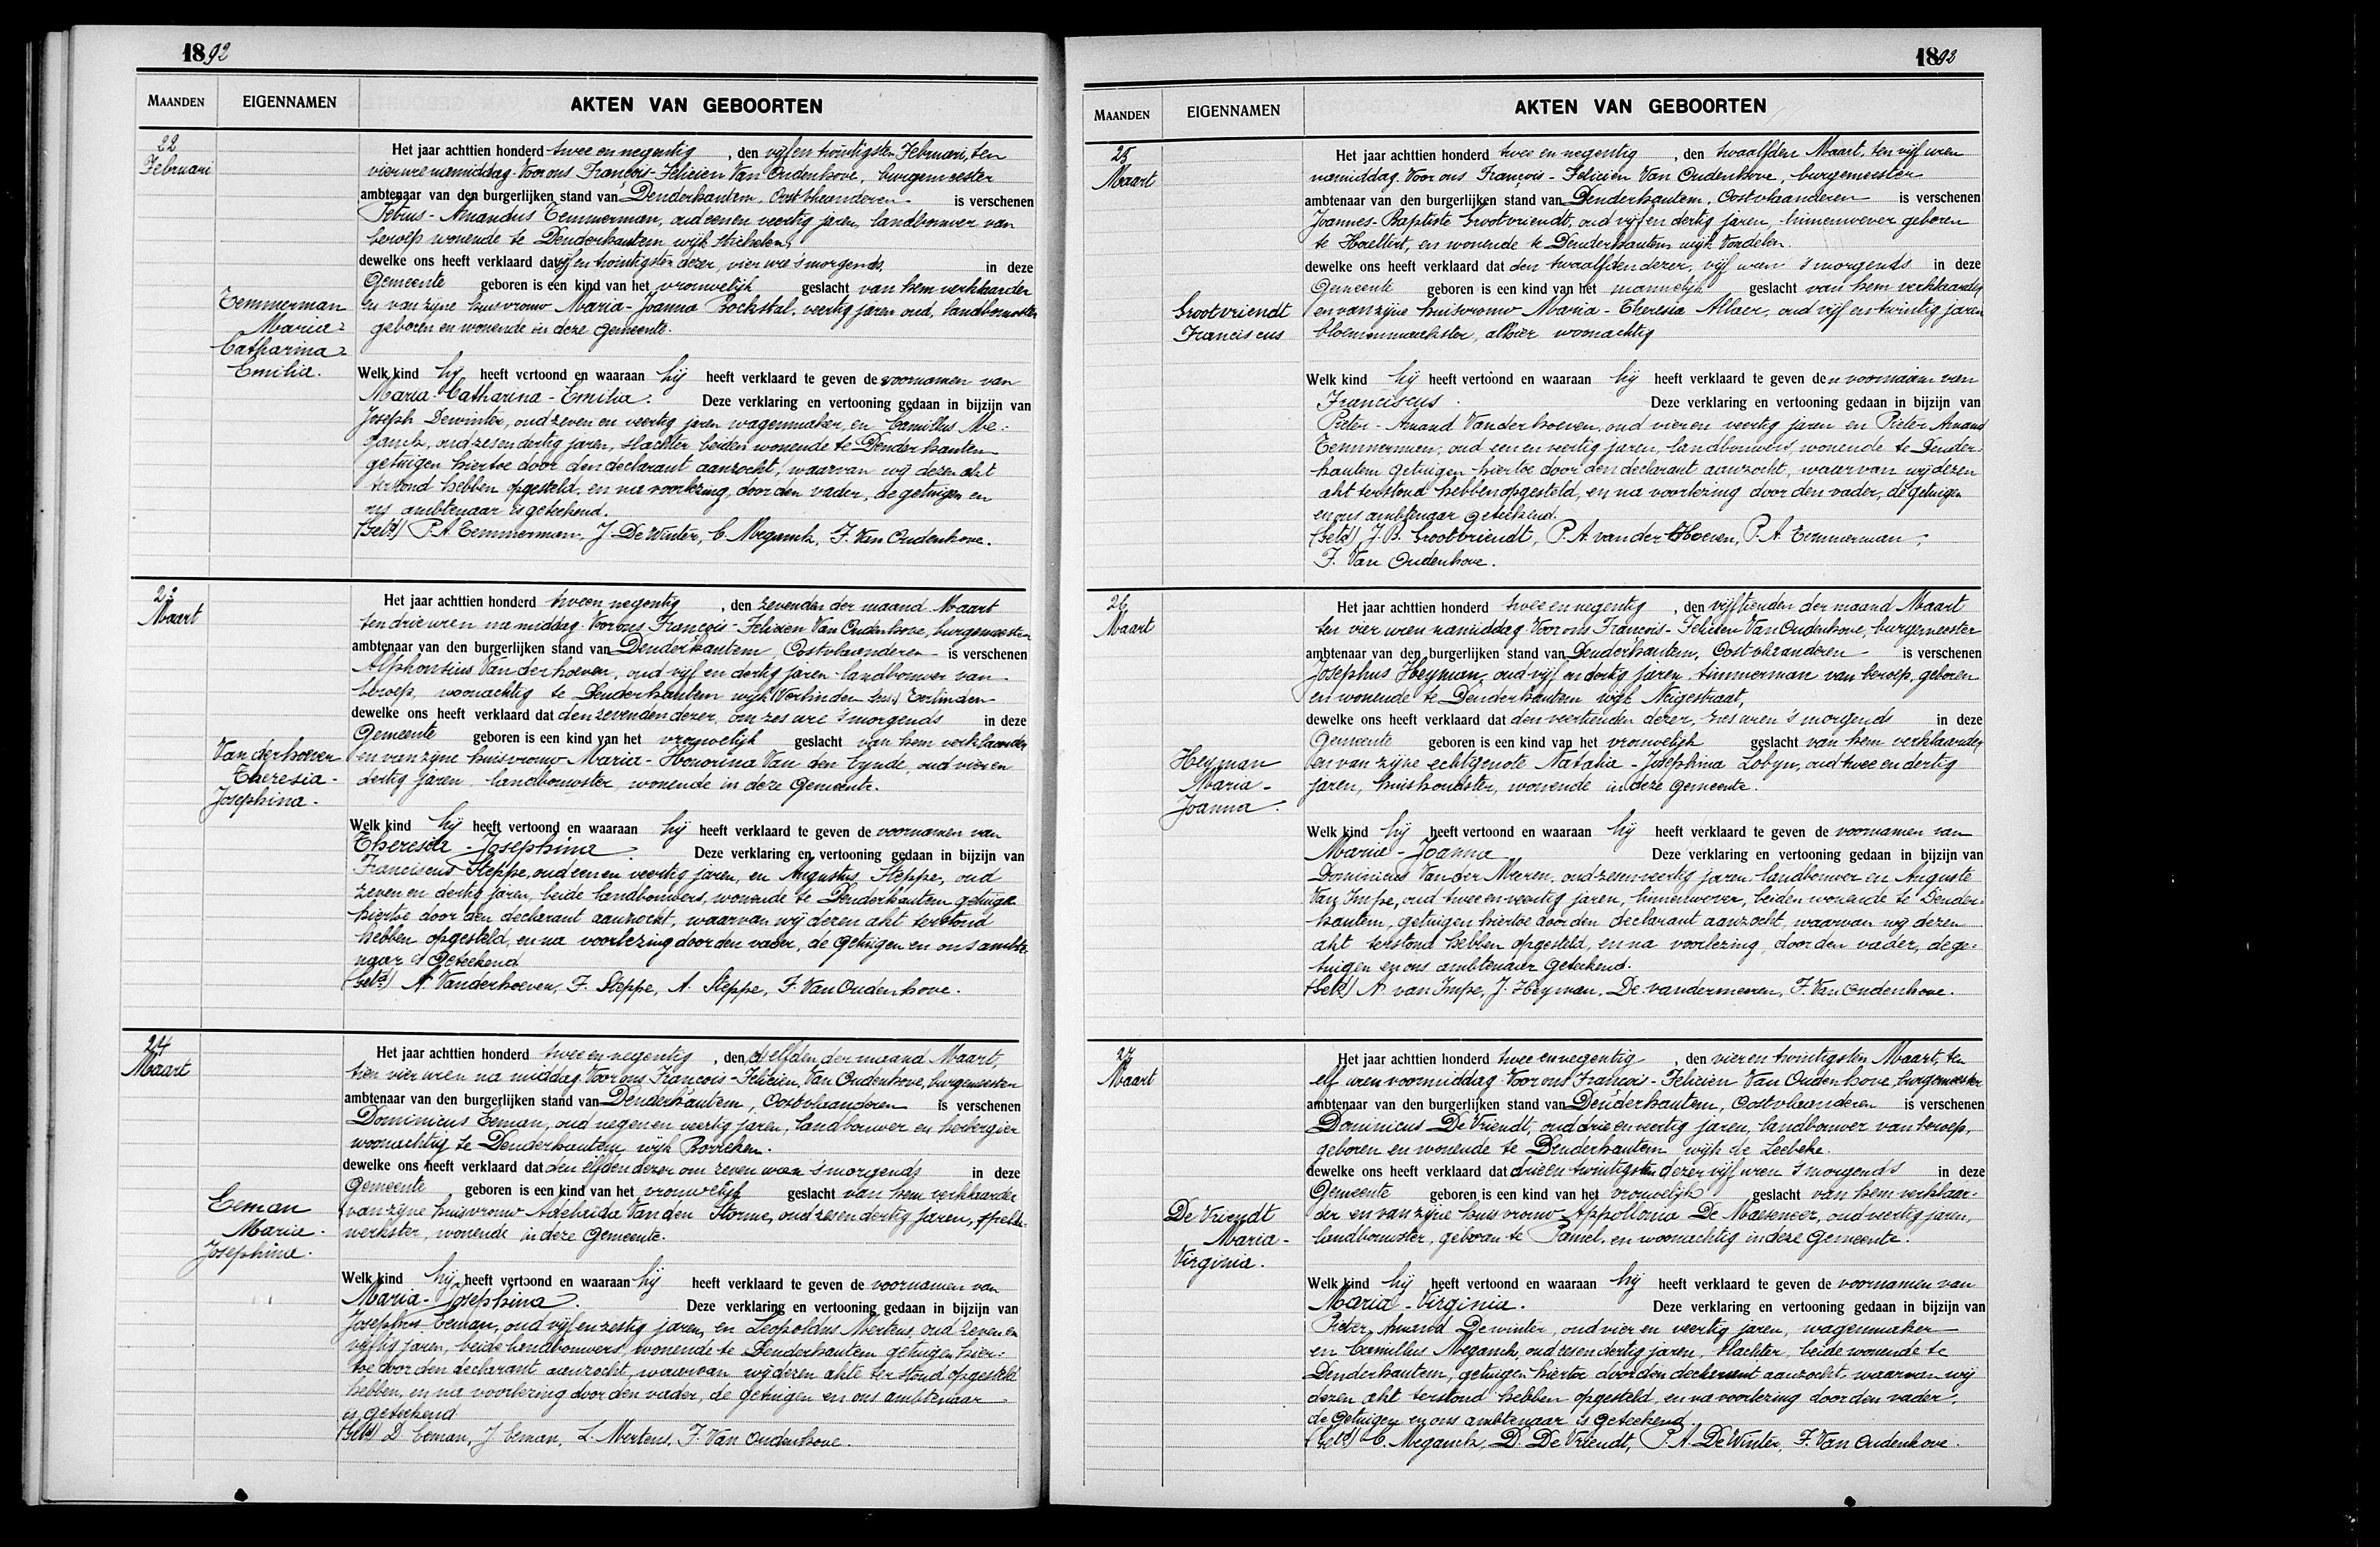 1892
MAANDEN EIGENNAMEN AKTEN VAN GEBOORTEN
22
Februari
Temmerman
Maria-
Catharina-
Emilia.
Het jaar achttien honderd twee en negentig, den vijf en twintigsten Februari, ten
vier ure namiddag. Voor ons François-Felicien Van Oudenhove, burgemeester
ambtenaar van den burgerlijken stand van Denderhautem, Oostvlaanderen is verschenen
Petrus-Amandus Temmerman, oud eenen veertig jaren, landbouwer van
beroep wonende te Denderhautem wijk
dewelke ons heeft verklaard dat vijf en twintigsten dezer, vier ure 's morgends, in deze
Gemeente geboren is een kind van het vrouwelijk geslacht van hem verklaarder
en van zijne huisvrouw Maria-Joanna Bockstal, veertig jaren oud, landbouwster
geboren en wonende in deze gemeente.
Welk kind hij heeft vertoond en waaraan hij heeft verklaard te geven de voornamen van
Maria-Catharina-Emilia. Deze verklaring en vertooning gedaan in bijzijn van
Joseph Dewinter, oud zeven en veertig jaren wagenmaker, en Camillus Me-
ganck, oud zes en dertig jaren, slachter, beiden wonende te Denderhautem
getuigen hiertoe door den declarant aanzocht, waarvan wij dezen akt
terstond hebben opgesteld, en na voorlezing, door den vader, de getuigen en
ons ambtenaar is geteekend.
(Getd) P. A. Temmerman, J. De Winter, C. Meganck, F. Van Oudenhove.
23
Maart
Van derhoeven
Theresia-
Josephina.
Het jaar achttien honderd twee en negentig, den zevenden der maand Maart
ten drie uren namiddag. Voor ons François-Felicien Van Oudenhove, burgemeester
ambtenaar van den burgerlijken stand van Denderhautem, Oostvlaanderen is verschenen
Alphonsius Van der hoeven, oud vijf en dertig jaren landbouwer van
beroep, woonachtig te Denderhautem wijk
dewelke ons heeft verklaard dat den zevenden dezer, om zes ure 's morgends in deze
Gemeente geboren is een kind van het vrouwelijk geslacht van hem verklaarder
en van zijne huisvrouw Maria-Honorina Van den Eynde, oud vier en
dertig jaren, landbouwster, wonende in deze Gemeente.
Welk kind hij heeft vertoond en waaraan hij heeft verklaard te geven de voornamen van
Theresia-Josephina. Deze verklaring en vertooning gedaan in bijzijn van
Franciscus Steppe, oud eenen veertig jaren, en Augustus Steppe, oud
zeven en dertig jaren, beide landbouwers, wonende te Denderhautem getuigen
hiertoe door den declarant aanzocht, waarvan wij dezen akt terstond
hebben opgesteld, en na voorlezing door den vader, de getuigen en ons ambte-
naar is Geteekend
(Getd) A. Vanderhoeven, F. Steppe, A. Steppe, F. Van Oudenhove.
24
Maart
Eeman
Maria-
Josephina.
Het jaar achttien honderd twee en negentig, den elfden der maand Maart,
tien vier uren na middag Voor ons François-Felicien, Van Oudenhove, burgemeester
ambtenaar van den burgerlijken stand van Denderhautem, Oostvlaanderen is verschenen
Dominicus Eeman, oud negen en veertig jaren, landbouwer en herbergier
woonachtig te Denderhautem wijk Borreken.
dewelke ons heeft verklaard dat den elfden dezer om zeven uren 's morgends in deze
Gemeente geboren is een kind van het vrouwelijk geslacht van hem verklaarder
van zijne huisvrouw Adelaida Van den Storme, oud zes en dertig jaren,
werkster, wonende in deze Gemeente.
Welk kind hij heeft vertoond en waaraan hij heeft verklaard te geven de voornamen van
Maria-Josephina. Deze verklaring en vertooning gedaan in bijzijn van
Josephus Eeman, oud vijf en zestig jaren, en Leopoldus Mertens, oud zeven en
vijftig jaren, beide landbouwers wonende te Denderhautem getuigen hier-
toe door den declarant aanzocht, waarvan wij dezen akte ter stond opgesteld
hebben, en na voorlezing door den vader, de getuigen en ons ambtenaar
is geteekend
(Getd) D. Eeman, J. Eeman, L. Mertens, F. Van Oudenhove.
1892
MAANDEN EIGENNAMEN AKTEN VAN GEBOORTEN
25
Maart
Grootvriendt
Franciscus
Het jaar achttien honderd twee en negentig, den twaalfden Maart, ten vijf uren
namiddag. Voor ons François-Felicien Van Oudenhove, burgemeester
ambtenaar van den burgerlijken stand van Denderhautem, Oostvlaanderen is verschenen
Joannes-Baptiste Grootvriendt, oud vijf en dertig jaren, linnenwever geboren
te Haeltert, en wonende te Denderhautem wijk Vondelen.
dewelke ons heeft verklaard dat den twaalfden dezer, vijf uren 's morgends in deze
Gemeente geboren is een kind van het mannelijk geslacht van hem verklaarder
en van zijne huisvrouw Maria-Theresia Allaer, oud vijf en twintig jaren
bloemenmaekster, alhier woonachtig
Welk kind hij heeft vertoond en waaraan hij heeft verklaard te geven den voornaam van
Franciscus. Deze verklaring en vertooning gedaan in bijzijn van
Pieter-Amand Vanderhoeven, oud vier en veertig jaren en Pieter Amand
Temmerman, oud een en veertig jaren, landbouwers, wonende te Dender-
hautem getuigen hiertoe door den declarant aanzocht, waarvan wij dezen
akt terstond hebben opgesteld, en na voorlezing door den vader, de getuigen
en ons ambtenaar geteekend.
(Getd) J. B. Grootvriendt, P. A. van der Hoeven, P. A. Temmerman,
F. Van Oudenhove.
26
Maart
Heyman
Maria-
Joanna.
Het jaar achttien honderd twee en negentig, den vijftienden der maand Maart
ten vier uren namiddag Voor ons François-Felicien Van Oudenhove, burgemeester
ambtenaar van den burgerlijken stand van Denderhautem, Oostvlaanderen is verschenen
Josephus Heyman, oud vijf en dertig jaren, timmerman van beroep, geboren
en wonende te Denderhautem wijk Neigestraat,
dewelke ons heeft verklaard dat den veertienden dezer, zes uren 's morgends in deze
Gemeente geboren is een kind van het vrouwelijk geslacht van hem verklaarder
en van zijne echtgenote Natalia-Josephina Lobyn, oud twee en dertig
jaren, huishoudster, wonende in deze gemeente.
Welk kind hij heeft vertoond en waaraan hij heeft verklaard te geven de voornamen van
Maria-Joanna Deze verklaring en vertooning gedaan in bijzijn van
Dominicus Van der Meeren, oud zeven veertig jaren, landbouwer en Auguste
Van Impe, oud twee en veertig jaren, linnenwever, beiden wonende te Dender-
hautem, getuigen hiertoe door den declarant aanzocht, waarvan wij dezen
akt terstond hebben opgesteld, en na voorlezing, door den vader, de ge-
tuigen en ons ambtenaar geteekend.
(Getd) A. van Impe, J. Heyman, De vandermeeren, F. Van Oudenhove.
27
Maart
De Vriendt
Maria-
Virginia.
Het jaar achttien honderd twee en negentig, den vier en twintigsten Maart, ten
elf uren voormiddag Voor ons François-Felicien Van Oudenhove, burgemeester
ambtenaar van den burgerlijken stand van Denderhautem, Oostvlaanderen is verschenen
Dominicus De Vriendt, oud drie en veertig jaren, landbouwer van beroep,
geboren en wonende te Denderhautem wijk de Leebeke.
dewelke ons heeft verklaard dat drieen twintigsten dezer vijf uren 's morgends in deze
Gemeente geboren is een kind van het vrouwelijk geslacht van hem verklaar-
der en van zijne huisvrouw Appollonia De Maeseneer, oud veertig jaren,
landbouwster, geboren te Pamel, en woonachtig in deze Gemeente.
Welk kind hij heeft vertoond en waaraan hij heeft verklaard te geven de voornamen van
Maria-Virginia. Deze verklaring en vertooning gedaan in bijzijn van
Pieter Amand Dewinter, oud vier en veertig jaren, wagenmaker
en Camillus Meganck, oud zes en dertig jaren, slachter, beide wonende te
Denderhautem, getuigen hiertoe door den declarant aanzocht, waarvan wij
dezen akt terstond hebben opgesteld, en na voorlezing door den vader,
de getuigen en ons ambtenaar is geteekend.
(Getd) C. Meganck, D. De Vriendt, P. A. De Winter, F. Van Oudenhove.